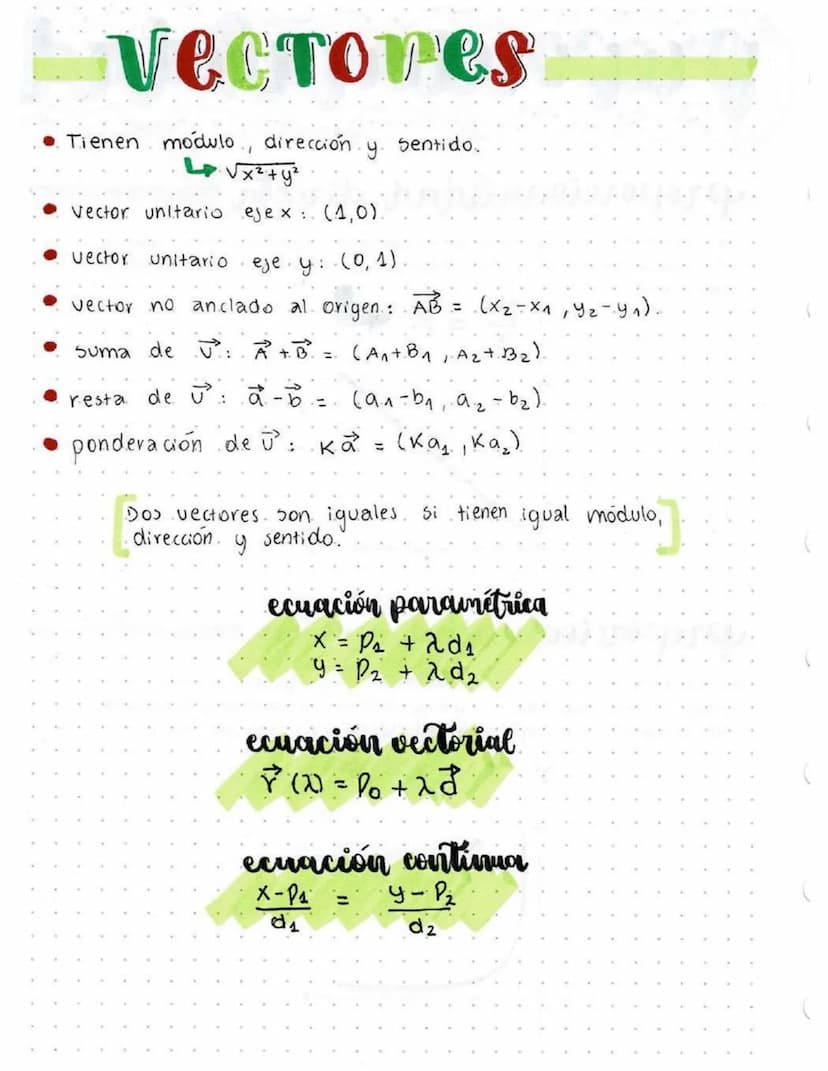 VECTORES
• Tienen módulo, dirección y sentido.
↳ √x²+y²
• vector unitario eje x: (1,0)
• vector unitario eje y: (0,1)
• vector no anclado al origen: A⃗B⃗ = (x₂-x₁, y₂-y₁).
• suma de v⃗: A⃗ + B⃗ = (A₁+B₁, A₂+B₂)
• resta de v⃗: a⃗ - b⃗ = (a₁-b₁, a₂-b₂)
• ponderación de v⃗: Ka⃗ = (Ka₁, Ka₂)
[Dos vectores son iguales si tienen igual módulo,
dirección y sentido.]
ecuación paramétrica
x = P₁ + λd₁
y = P₂ + λd₂
ecuación vectorial
r⃗(λ) = P₀ + λd⃗
ecuación continua
x-P₁ = y-P₂
d₁ d₂